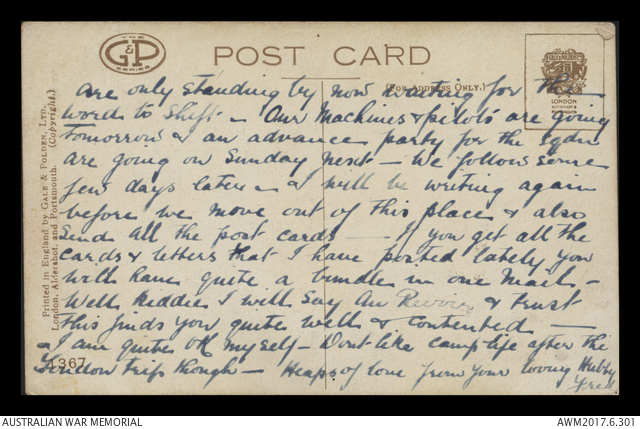 THE
G&P
SERIES
POST CARD
(FOR ADDRESS ONLY.)
GALE & POLDEN LTD
LONDON
ALDERSHOT &
PORTSMOUTH
Printed in England by GALE & POLDEN, LTD.,
London, Aldershot, and Portsmouth. (Copyright.)
are only standing by now waiting for the
word to shift - Our Machines & pilots are going
tomorrow & an advance party for the sqdn
are going on Sunday next - We follow some
few days later - & I will be writing again
before we move out of this place & also
send all the post cards - If you get all the
cards & letters that I have posted lately you
will have quite a bundle in one Mail -
Well Kiddie I will say Au Revoir & trust
this finds you quite well & contented -
I am quite OK myself - Dont like camp life after the
London trip though - Heaps of love from your loving Hubby
Fred
1367
AUSTRALIAN WAR MEMORIAL
AWM2017.6.301